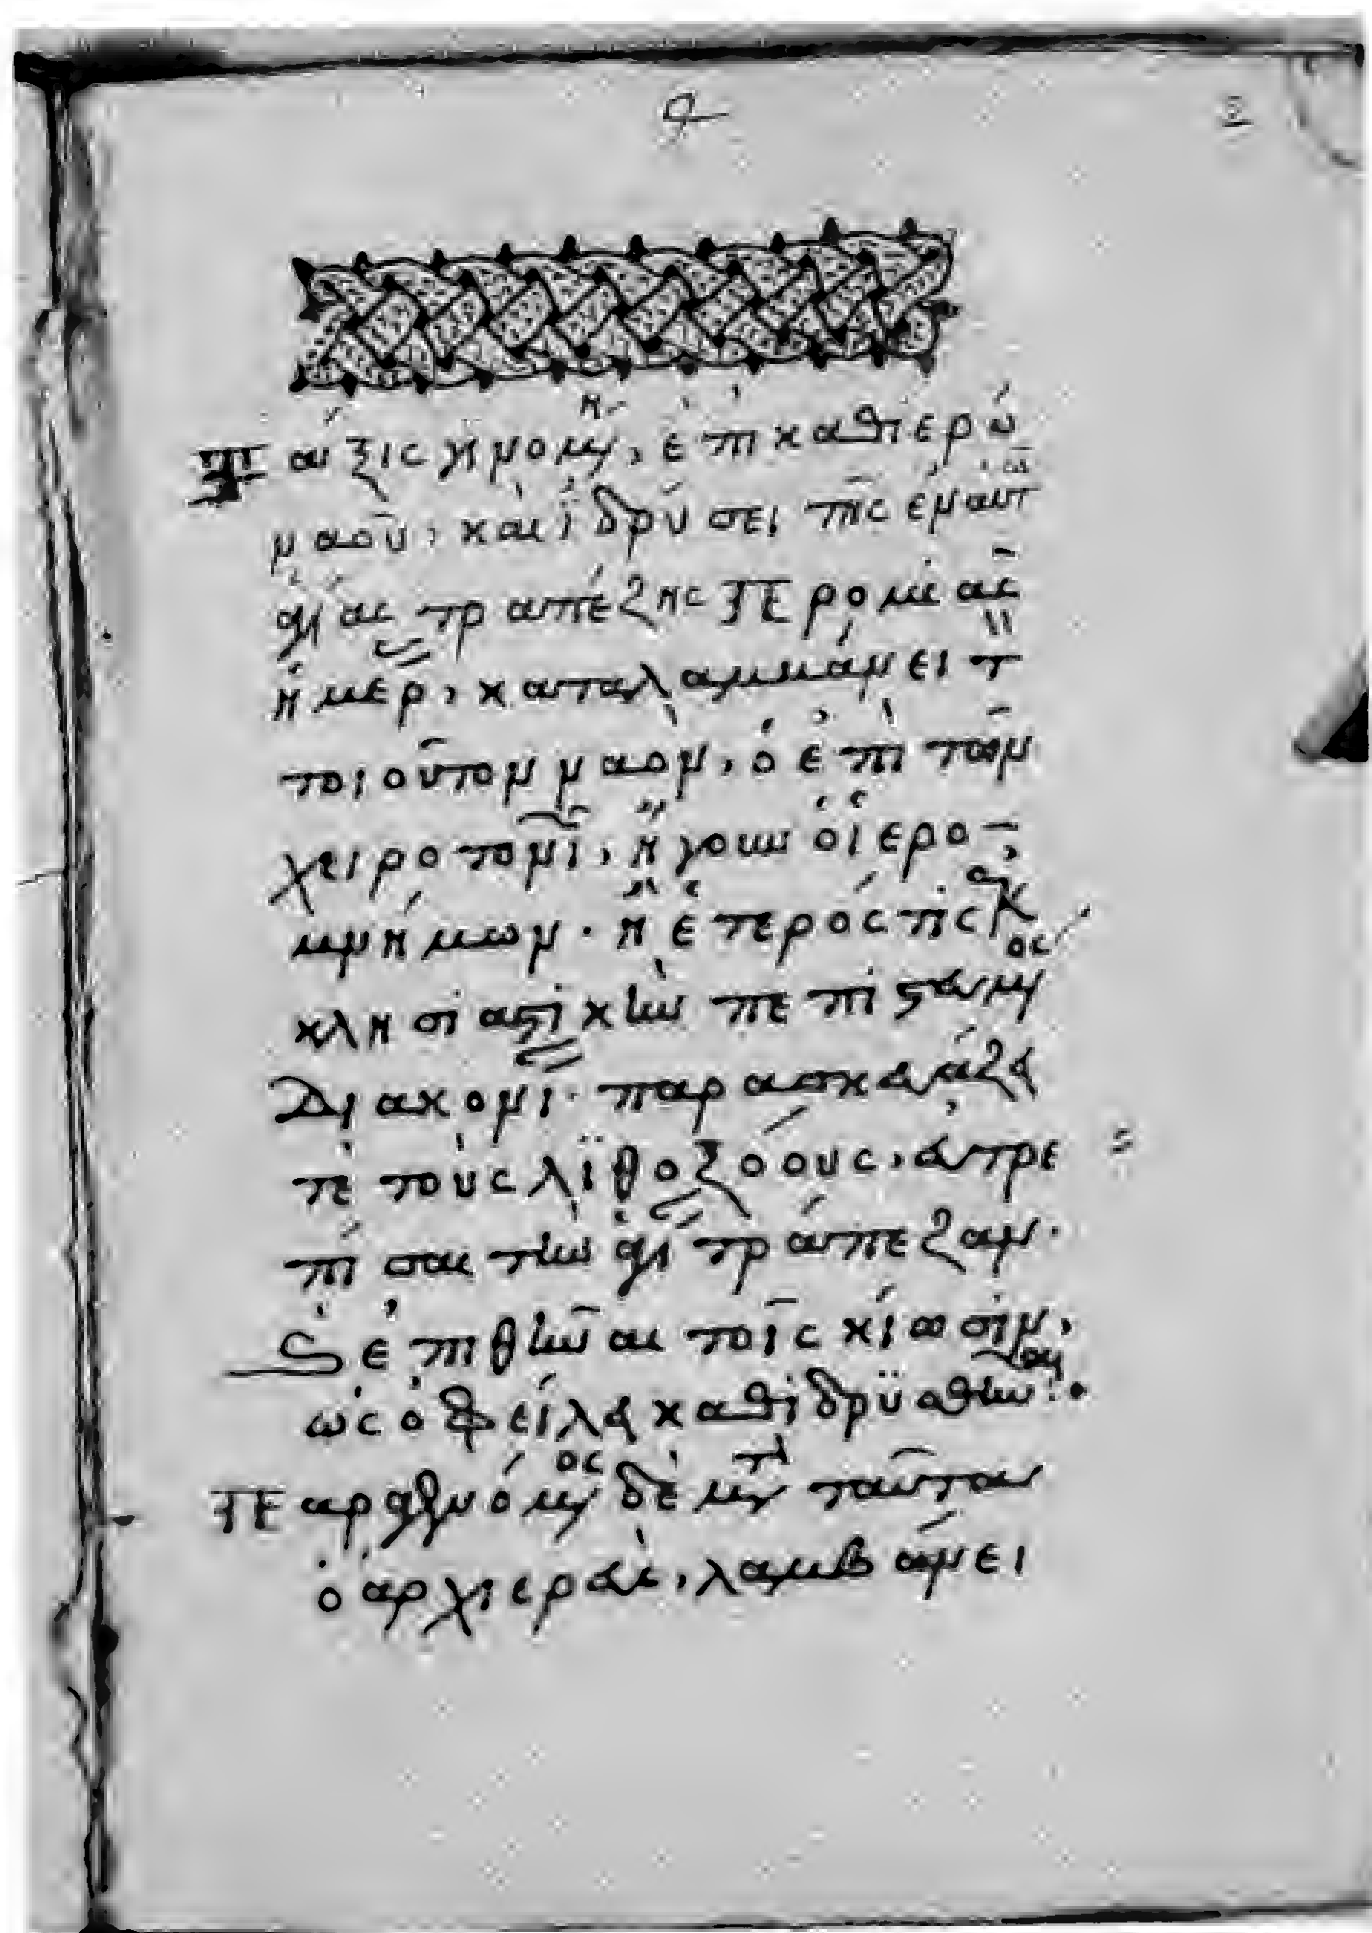 Τάξις γινομένη, ἐπὶ καθιερώ
ναοῦ, καὶ ἱδρύσει τῆς ἐν αὐτῶ
ἁγίας τραπέζης Πρὸ μιᾶς
ἡμέρ, καταλαμβάνει τ
τοιοῦτον ναὸν, ὁ ἐπὶ τῶν
χειροτονι, ἤγουν ὁ ἱερο
μνήμων. ἢ ἕτερός τις
κλησιαστικὴν πεπιστευμένος
Διακονί. παρασκευάζει
τὲ τοὺς λιθοξόους, εὐτρε
πίσαι τὴν ἁγί τράπεζαν.
ἐπιθῆναι τοῖς κίοσιν,
ὡς ὀφείλει καθιδρυθῆν
Παραγενόμενος δὲ μετὰ ταῦτα
ὁ ἀρχιερεὺς, λαμβάνει